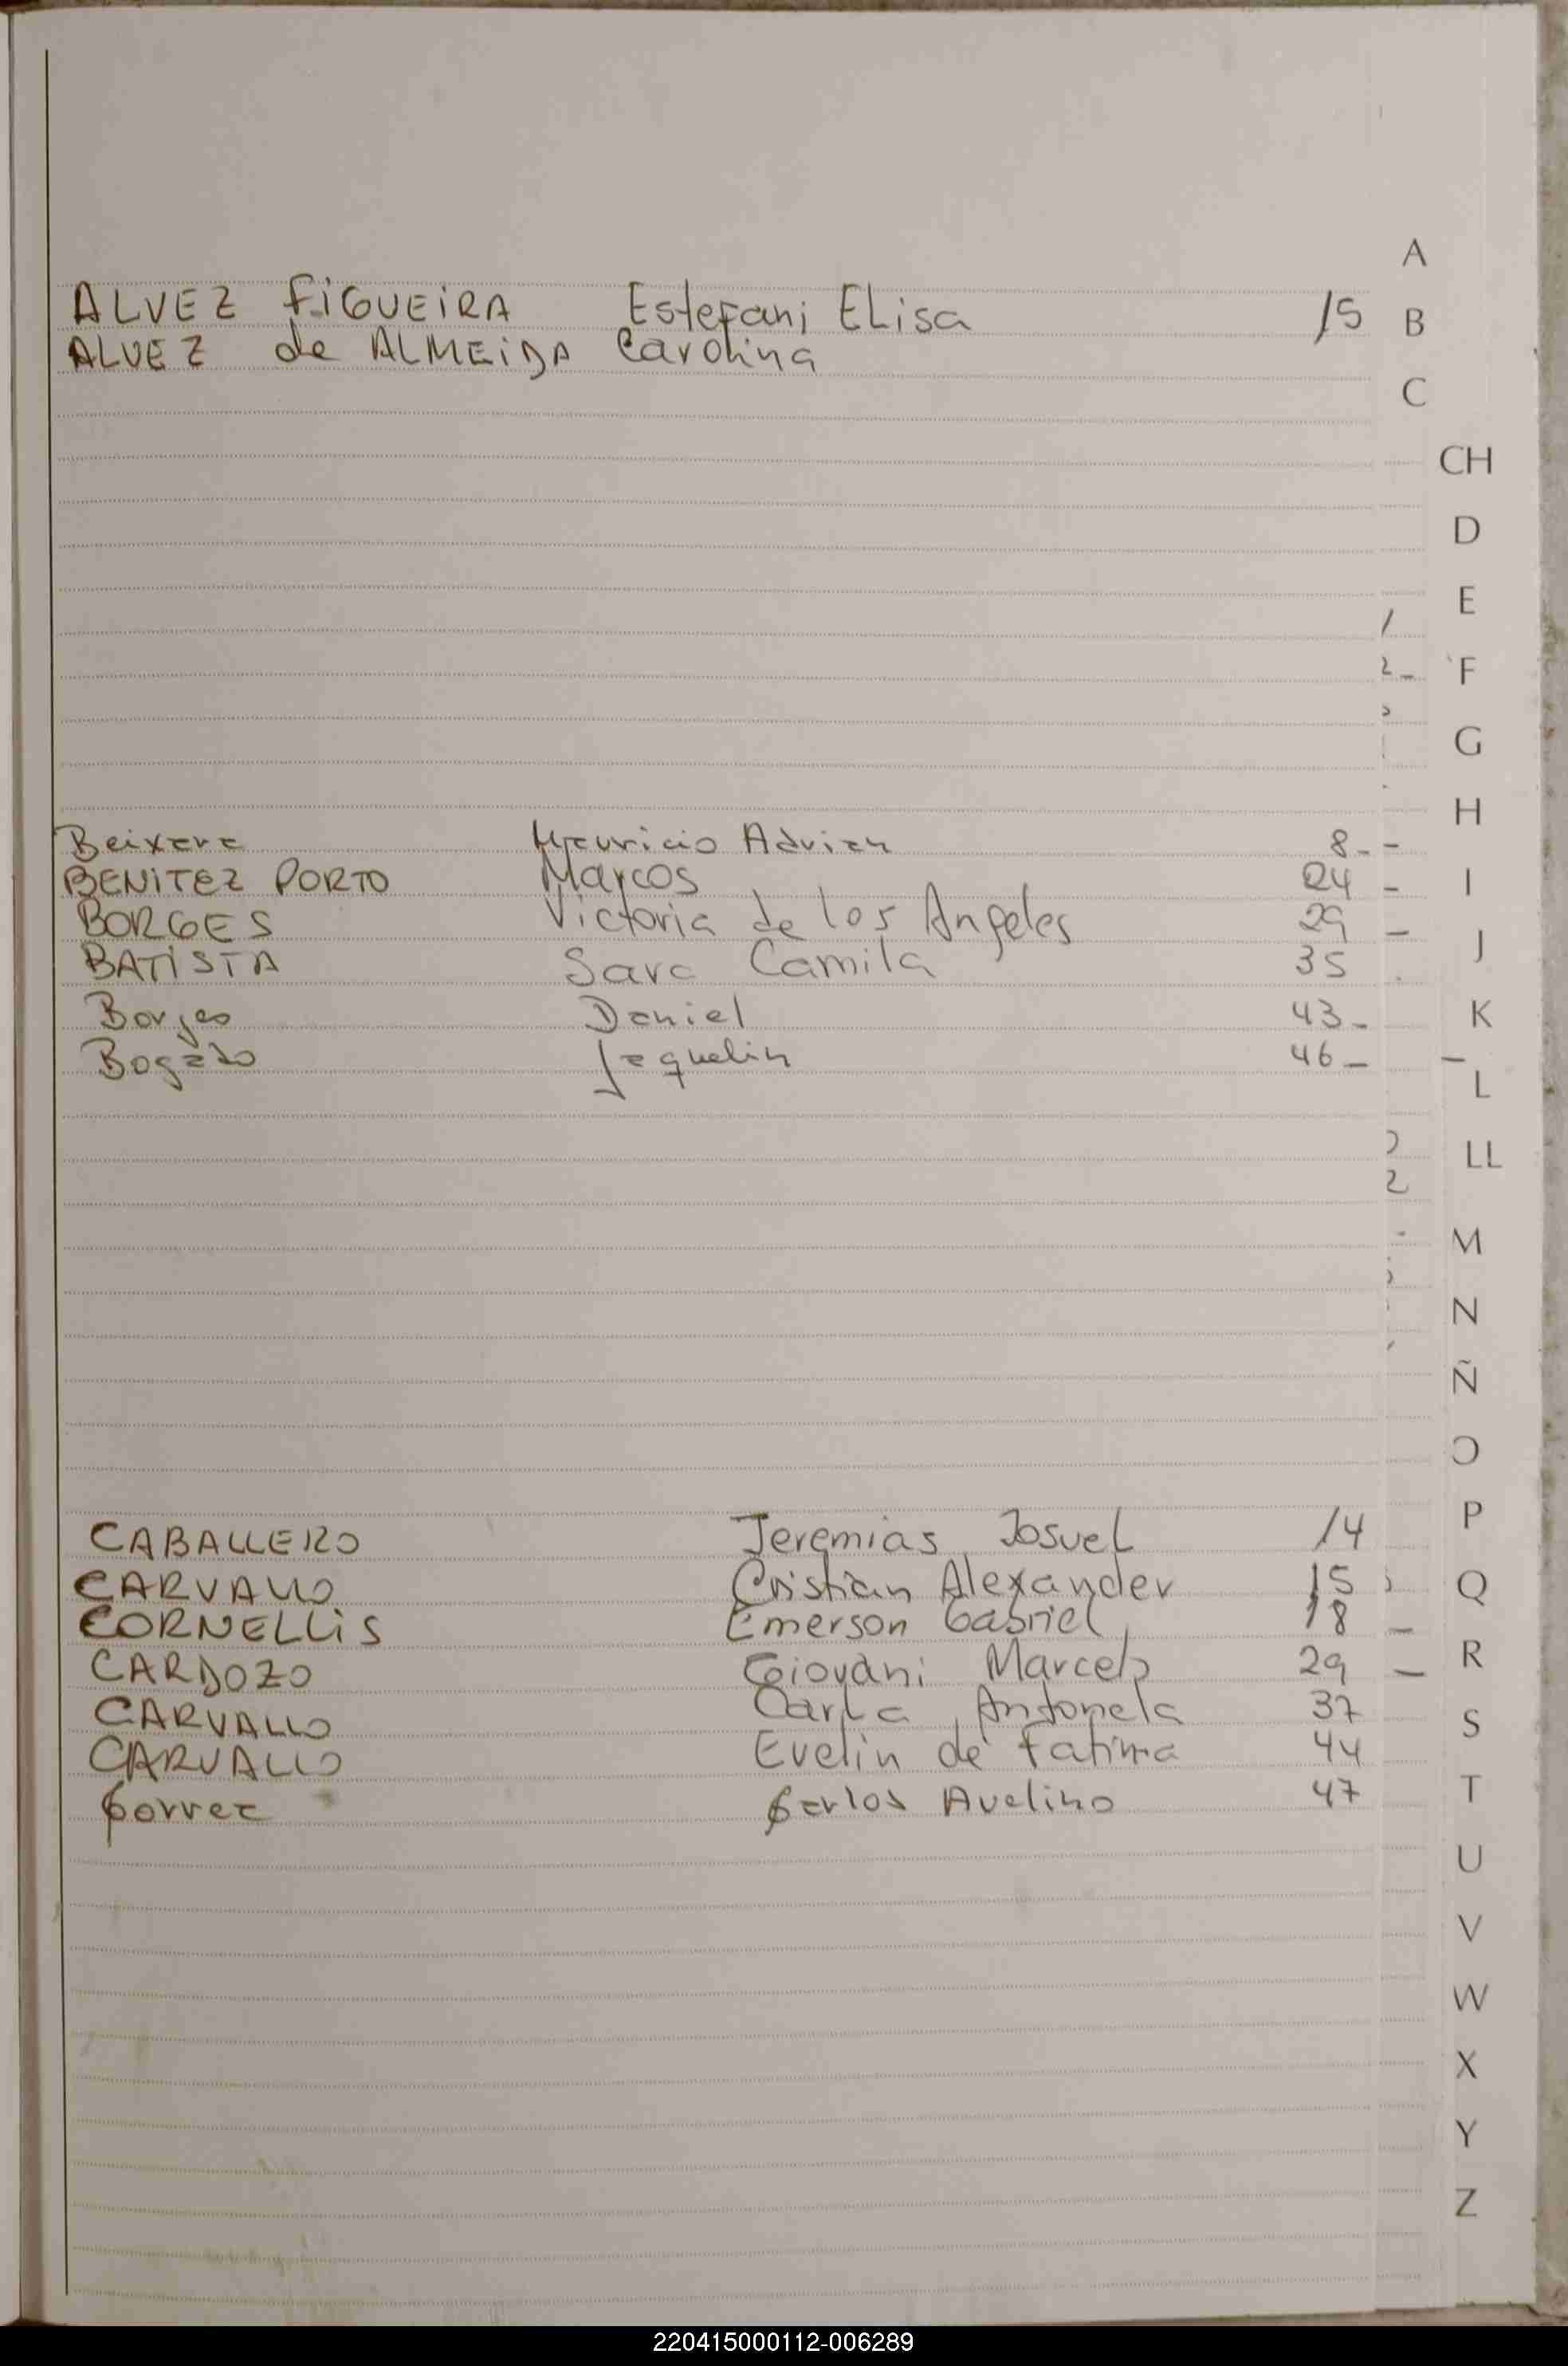 A
ALVEZ FiGUEiRA Estefani ELisa 15 B
ALVEZ de ALMEiDA Carolina
C
CH
D
E
F
G
H
Beixera Mauricio Adrian 8 -
BENiTEZ PORTO Marcos 24 - I
BORGES Victoria de los Angeles 29 -
BATiSTA Sara Camila 35 J
Borges Daniel 43 - K
Bogado Jaquelin 46 -
L
LL
2
M
N
Ñ
O
P
CABALLERO Jeremias Josuel 14
CARVALLO Cristian Alexander 15 Q
CORNELLiS Emerson Gabriel 18 -
CARDOZO Giovani Marcelo 29 - R
CARVALLO Carla Antonela 37 S
CARVALLO Evelin de Fatima 44
Correa Carlos Avelino 47 T
U
V
W
X
Y
Z
220415000112-006289